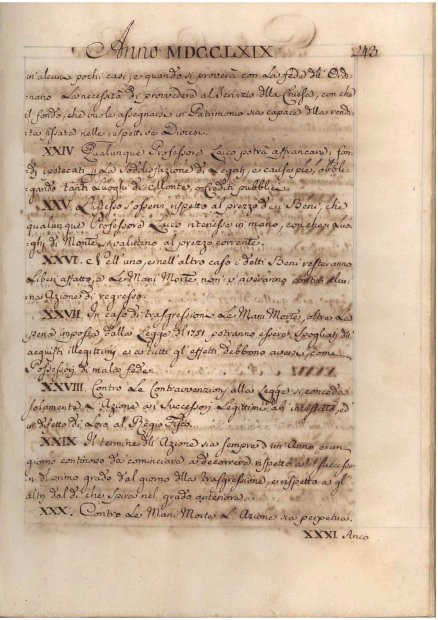 Anno MDCCLXIX 243
in alcuni pochi casi, e quando si proverà con la fede dell' Ordi-
nario la necessità di provedere al Servizio della Chiesa, con che
il fondo, che vuole assegnarsi in Patrimonio sia capace della rendi-
ta fissata nelle respettive Diocesi.
XXIV. Qualunque Professore Laico potrà affrancare, fon-
di ipotecati la Soddisfazione di Legati, e cause pie, obbli-
gando tanti Luoghi di Monte, o Crediti pubblici.
XXV. Lo stesso s'osservi rispetto al prezzo di essi Beni, che
qualunque Professore Laico ritenesse in mano, con che i Luo-
ghi di Monte si valutino al prezzo corrente.
XXVI. Nell' uno, e nell' altro caso i detti Beni resteranno
Liberi affatto, e le Mani Morte non vi averanno contro alcu-
na Azione di regresso.
XXVII. In caso di trasgressione le Mani Morte, oltre la
pena imposta dalla Legge del 1751 potranno essere Spogliati degli
acquisti illegittimi, e a tutti gl' effetti debbono aversi, come
Possessori di mala fede.
XXVIII. Contro le Contravvenzioni alla Legge si conceda
solamente l' Azione ai Successori Legittimi ab intestato, ed
in difetto di Loro al Regio Fisco.
XXIX. Il termine dell' Azione sia sempre d' un' Anno, e un
giorno continuo da cominciare a decorrere rispetto ai Successo-
ri di primo grado dal giorno della trasgressione, e rispetto a gl'
altri dal dì che spira nel grado anteriore.
XXX. Contro le Mani Morte l' Azione sia perpetua.
XXXI. Anco